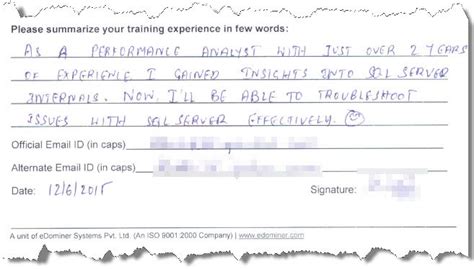 Please summarize your training experience in few words:
AS A PERFORMANCE ANALYST WITH JUST OVER 2 YEARS
OF EXPERIENCE I GAINED INSIGHTS INTO SQL SERVER
INTERNALS. NOW, I'LL BE ABLE TO TROUBLESHOOT
ISSUES WITH SQL SERVER EFFECTIVELY.
Official Email ID (in caps)
Alternate Email ID (in caps)
Date: 12/6/2015 Signature:
A unit of eDominer Systems Pvt. Ltd. (An ISO 9001:2000 Company) | www.edominer.com